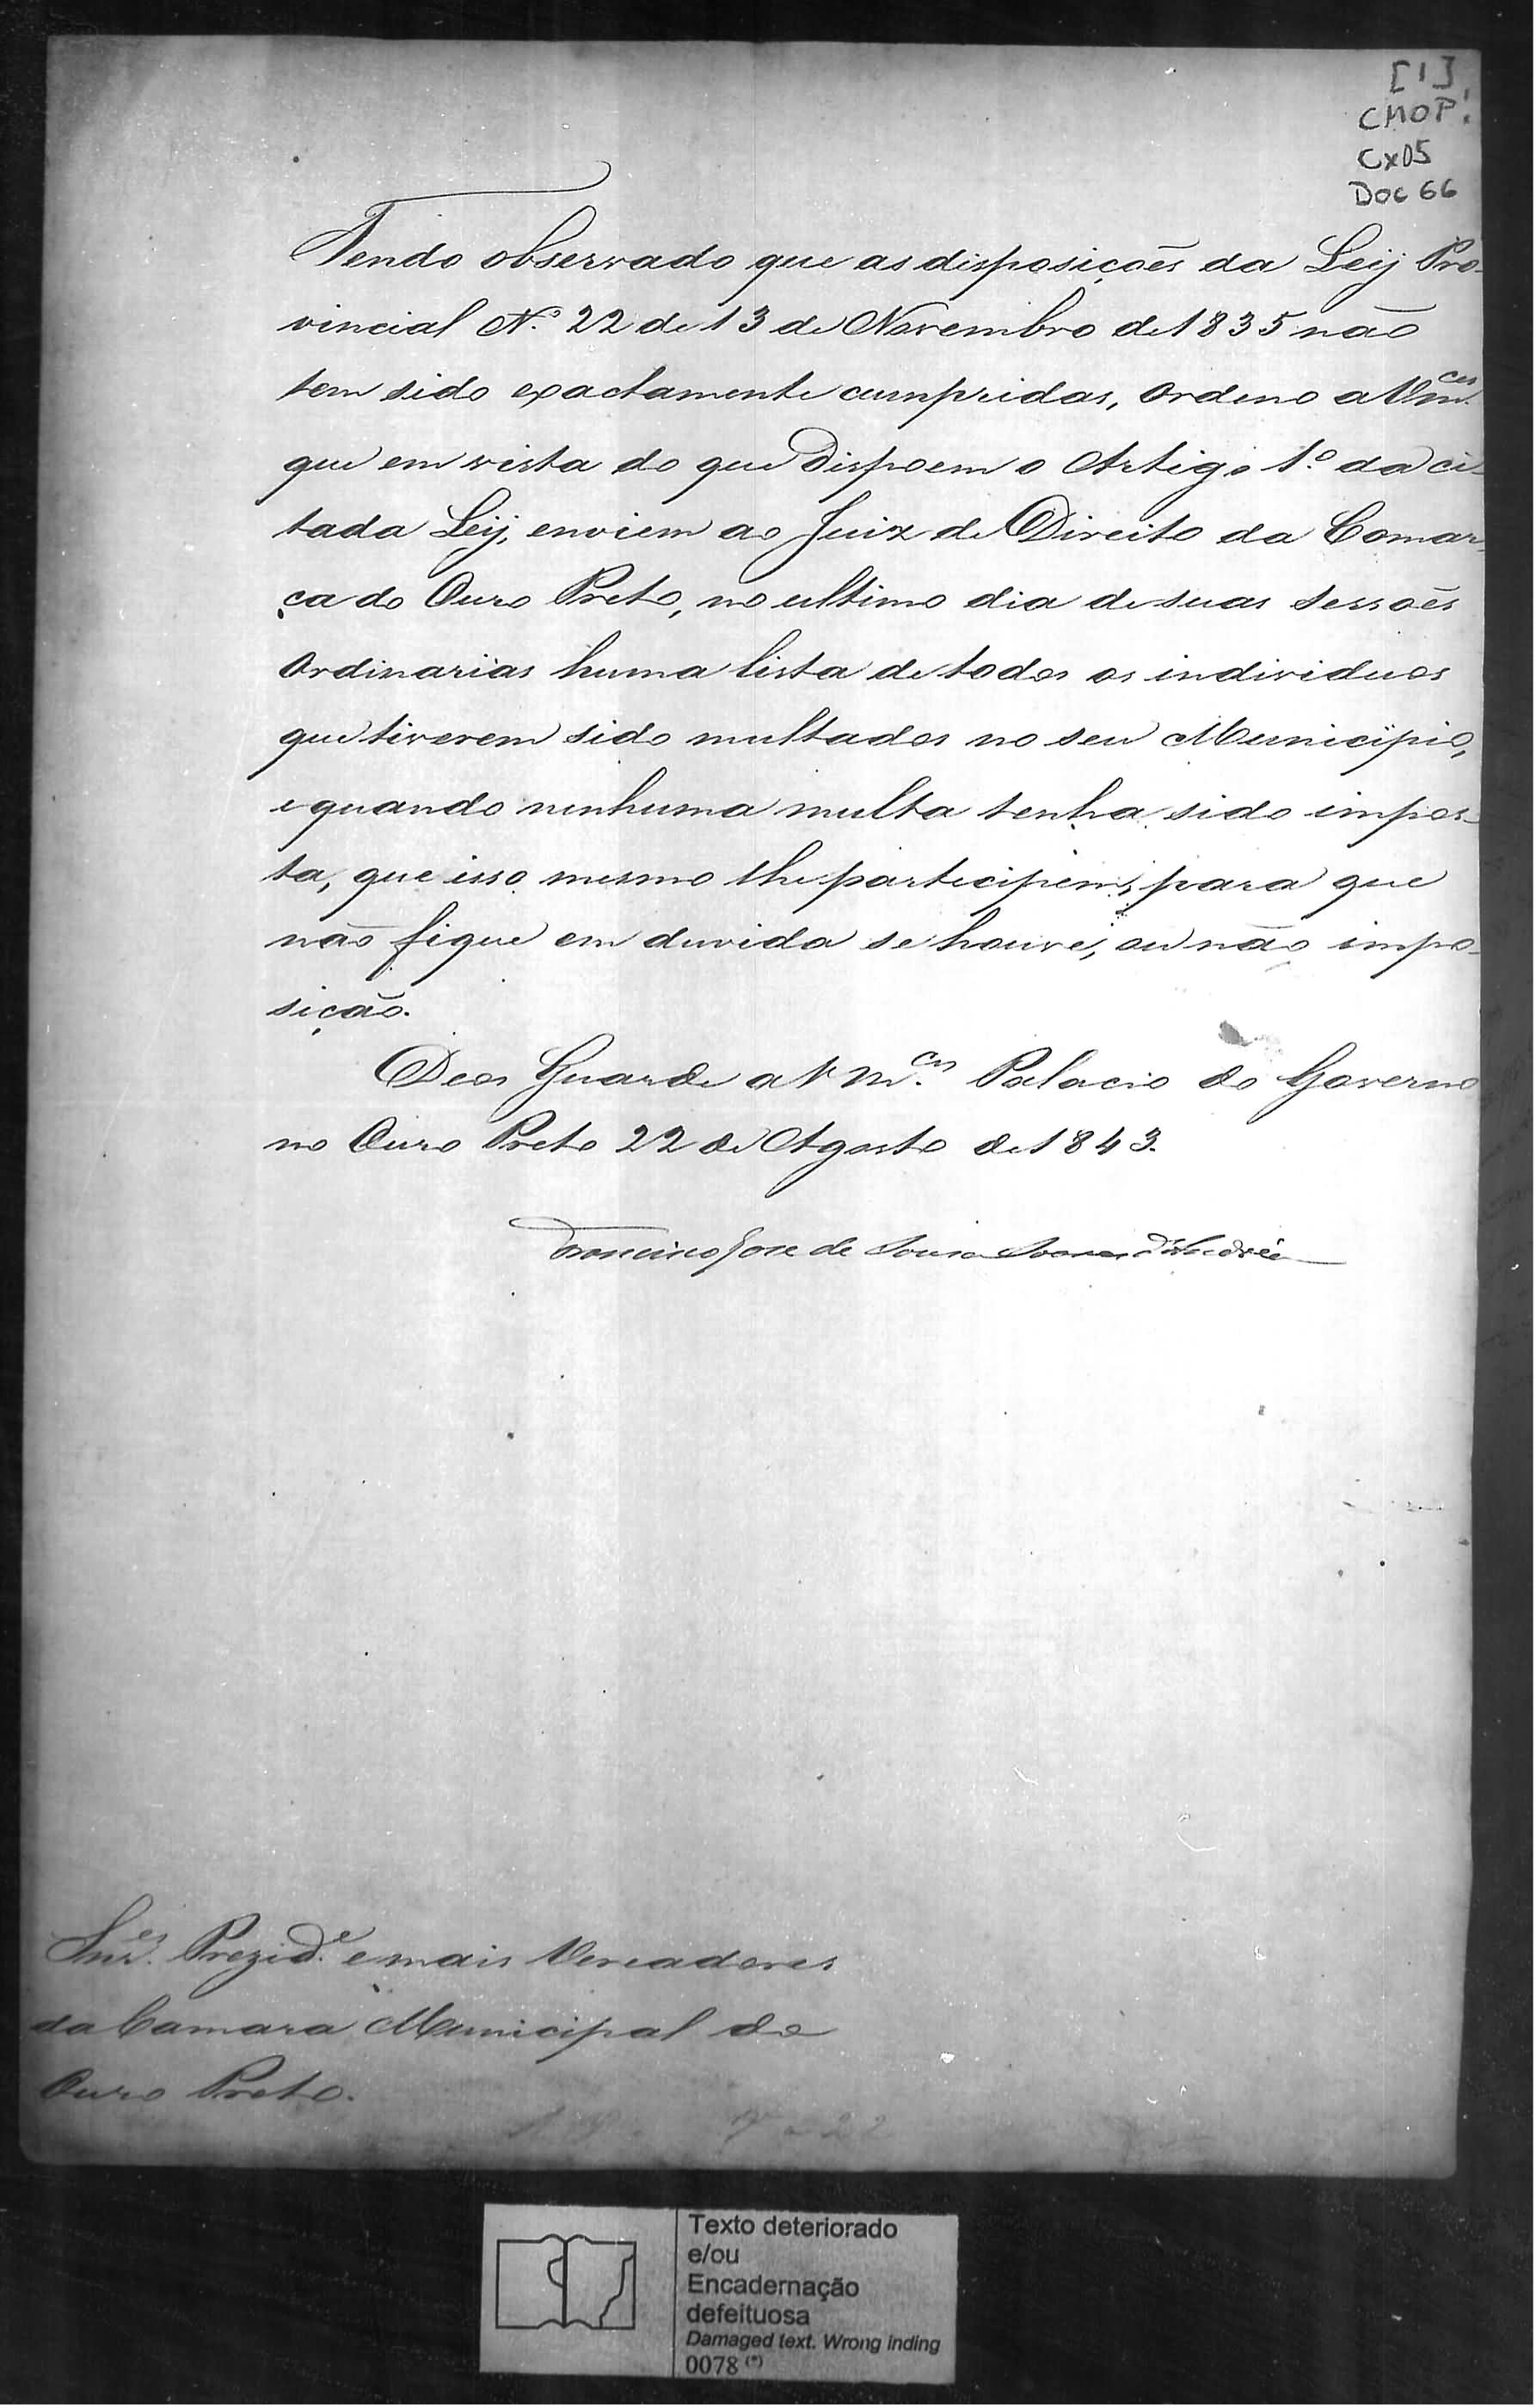 [1]
CMOP.
Cx05
Doc 66
Tendo observado que as disposições da Leij Pro-
vincial N.º 22 de 13 de Novembro de 1835 não
tem sido exactamente cumpridas, Ordeno a Vm.ces
que em vista do que dispoem o Artigo 1.º da ci-
tada Leij, enviem ao Juiz de Direito da Comar-
ca do Ouro Preto, no ultimo dia de suas Sessões
Ordinarias huma lista de todos os individuos
que tiverem sido multados no seu Municipio,
e quando nenhuma multa tenha sido impos-
ta, que isso mesmo lhe participem, para que
não fique em duvida se houve, ou não impo-
sição.
Deos Guarde a V M.ces Palacio do Governo
no Ouro Preto 22 de Agosto de 1843.
Francisco Jose de Sousa Soares d'Andréa
Snr.es Prezid.e e mais Vereadores
da Camara Municipal do
Ouro Preto.
Texto deteriorado
e/ou
Encadernação
defeituosa
Damaged text. Wrong inding
0078 (*)